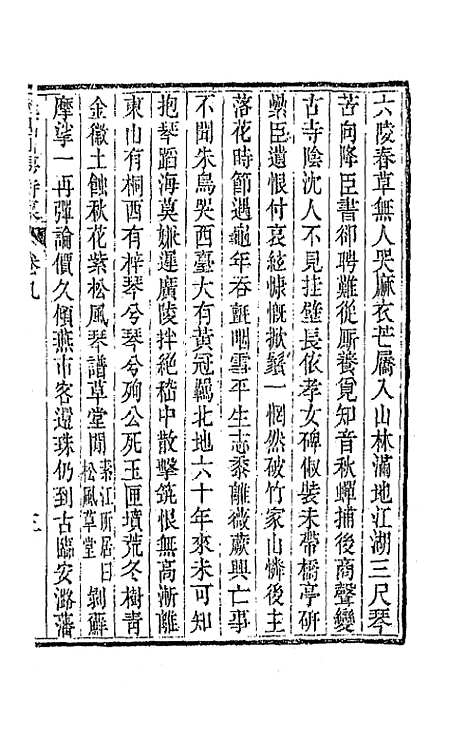 六陵春草無人哭麻衣芒屩入山林滿地江湖三尺琴
苦向降臣書卻聘難從厮養覓知音秋蟬捕後商聲變
古寺陰沈人不見挂壁長依孝女碑俶裝未帶橋亭硏
纍臣遺恨付哀絃慷慨掀鬚一惘然破竹家山憐後主
落花時節遇龜年吞氈咽雪平生志黍離薇蕨興亡事
不聞朱鳥哭西臺大有黃冠羈北地六十年來未可知
抱琴蹈海莫嫌遲廣陵拌絕嵇中散擊筑恨無高漸離
東山有桐西有梓琴兮琴兮殉公死玉匣墳荒冬樹靑
金徽土蝕秋花紫松風琴譜草堂閒素江所居曰松風草堂剝蘚
摩挲一再彈論價久傾燕市客還珠仍到古臨安潞藩
卷九
三